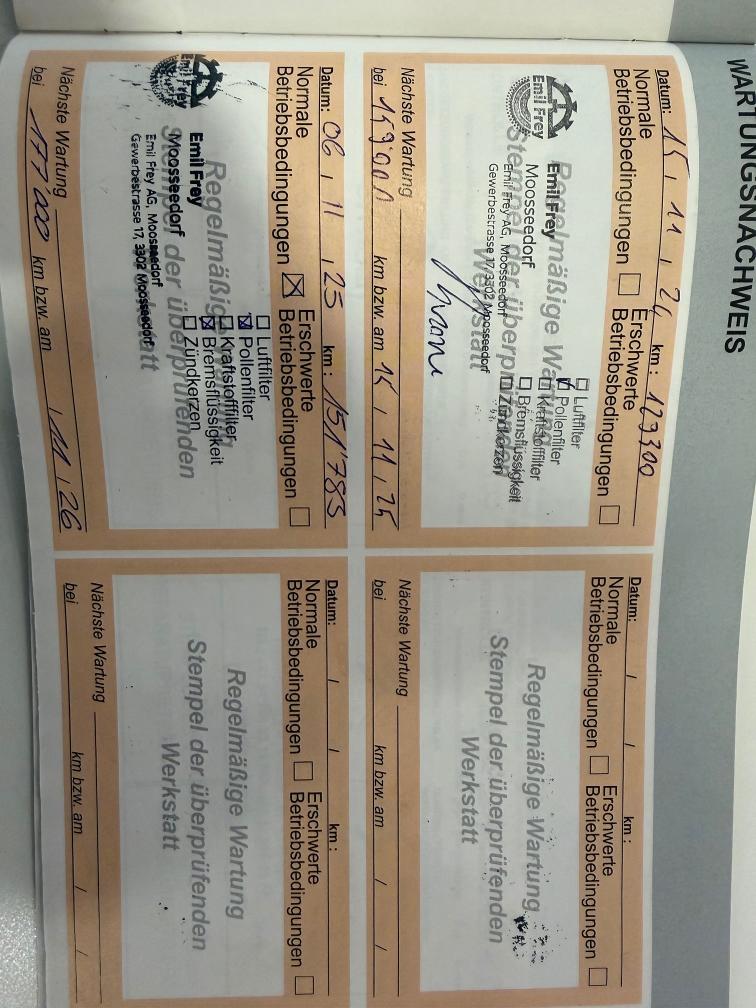 WARTUNGSNACHWEIS
Datum: 15 / 11 / 24 km: 129300
Normale Betriebsbedingungen ☐ Erschwerte Betriebsbedingungen ☐
Regelmäßige Wartung
Stempel der überprüfenden
Werkstatt
Emil Frey
Emil Frey
Moosseedorf
Emil Frey AG, Moosseedorf
Gewerbestrasse 17, 3302 Moosseedorf
☐ Luftfilter
☒ Pollenfilter
☐ Kraftstofffilter
☐ Bremsflüssigkeit
☐ Zündkerzen
Nächste Wartung
bei 159'000 km bzw. am 15 / 11 / 25
Datum: 06 / 11 / 25 km: 151'785
Normale Betriebsbedingungen ☒ Erschwerte Betriebsbedingungen ☐
Regelmäßige Wartung
Stempel der überprüfenden
Werkstatt
Emil Frey
Emil Frey
Moosseedorf
Emil Frey AG, Moosseedorf
Gewerbestrasse 17, 3302 Moosseedorf
☐ Luftfilter
☒ Pollenfilter
☐ Kraftstofffilter
☒ Bremsflüssigkeit
☐ Zündkerzen
Nächste Wartung
bei 177'000 km bzw. am / 11 / 26
Datum: / / km:
Normale Betriebsbedingungen ☐ Erschwerte Betriebsbedingungen ☐
Regelmäßige Wartung
Stempel der überprüfenden
Werkstatt
Nächste Wartung
bei km bzw. am / /
Datum: / / km:
Normale Betriebsbedingungen ☐ Erschwerte Betriebsbedingungen ☐
Regelmäßige Wartung
Stempel der überprüfenden
Werkstatt
Nächste Wartung
bei km bzw. am / /